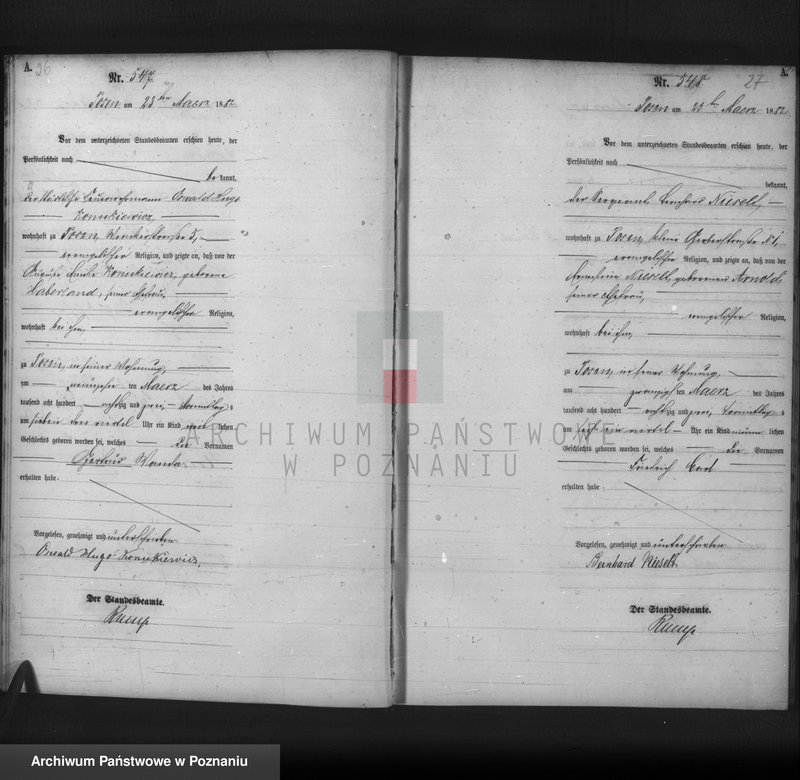 A. 26
Nr. 547
Posen am 23ten Maerz 1882
Vor dem unterzeichneten Standesbeamten erschien heute, der
Persönlichkeit nach
bekannt,
der Oswald Hugo
Konukiewicz,
wohnhaft zu Posen, 5,
evangelischer Religion, und zeigte an, daß von der
Auguste Konukiewicz, geborene
Haberland, seiner Ehefrau,
evangelischer Religion,
wohnhaft bei ihm,
zu Posen, in seiner Wohnung,
am ten Maerz des Jahres
tausend acht hundert achtzig und zwei, Vormittag s
um sieben ein viertel Uhr ein Kind weib lichen
Geschlechts geboren worden sei, welches die Vornamen
Gertrud Wanda
erhalten habe.
Vorgelesen, genehmigt und unterschrieben
Oswald Hugo Konukiewicz.
Der Standesbeamte.
Kump
A.
27
Nr. 548
Posen am 23ten Maerz 1882
Vor dem unterzeichneten Standesbeamten erschien heute, der
Persönlichkeit nach
bekannt,
der Sergeant Bernhard Nieselt,
wohnhaft zu Posen, kleine Gerberstraße
evangelischer Religion, und zeigte an, daß von der
Ernestine Nieselt, geborenen Arnold,
seiner Ehefrau,
evangelischer Religion,
wohnhaft bei ihm,
zu Posen in seiner Wohnung,
am zwanzigsten Maerz des Jahres
tausend acht hundert achtzig und zwei, Vormittag s
um ein viertel Uhr ein Kind männ lichen
Geschlechts geboren worden sei, welches die Vornamen
Friedrich Carl
erhalten habe
Vorgelesen, genehmigt und unterschrieben
Bernhard Nieselt.
Der Standesbeamte.
Kump
ARCHIWUM PAŃSTWOWE
W POZNANIU
Archiwum Państwowe w Poznaniu